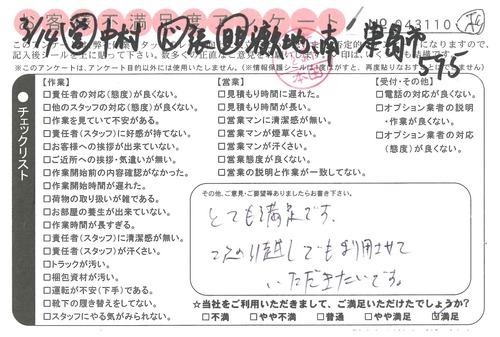 お客様不満足度アンケート
No 043110
【作業】
□責任者の対応(態度)が良くない。
□他のスタッフの対応(態度)が良くない。
□作業を見ていて不安がある。
□責任者(スタッフ)に好感が持てない。
□お客様への挨拶が出来ていない。
□ご近所への挨拶・気遣いが無い。
□作業開始前の内容確認がなかった。
□作業開始時間が遅れた。
□荷物の取り扱いが雑である。
□お部屋の養生が出来ていない。
□作業時間が長すぎる。
□責任者(スタッフ)に清潔感が無い。
□責任者(スタッフ)が汗くさい。
□トラックが汚い。
□梱包資材が汚い。
□運転が不安(下手)である。
□靴下の履き替えをしてない。
□スタッフにやる気がみられない。
【営業】
□見積もり時間に遅れた。
□見積もり時間が長い。
□営業マンに清潔感が無い。
□営業マンが煙草くさい。
□営業マンが汗くさい。
□営業態度が良くない。
□営業の説明と作業が一致してない。
【受付・その他】
□電話の対応が良くない。
□オプション業者の説明
・作業が良くない。
□オプション業者の対応
(態度)が良くない。
チェックリスト
その他、ご意見・ご要望等ありましたらお書き下さい。
とても満足です。
次の引越しでも利用させて
いただきたいです。
☆当社をご利用いただきまして、ご満足いただけたでしょうか?
□不満 □やや不満 □普通 □やや満足 ☑満足